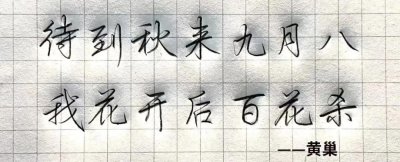 待到秋来九月八
我花开后百花杀
——黄巢